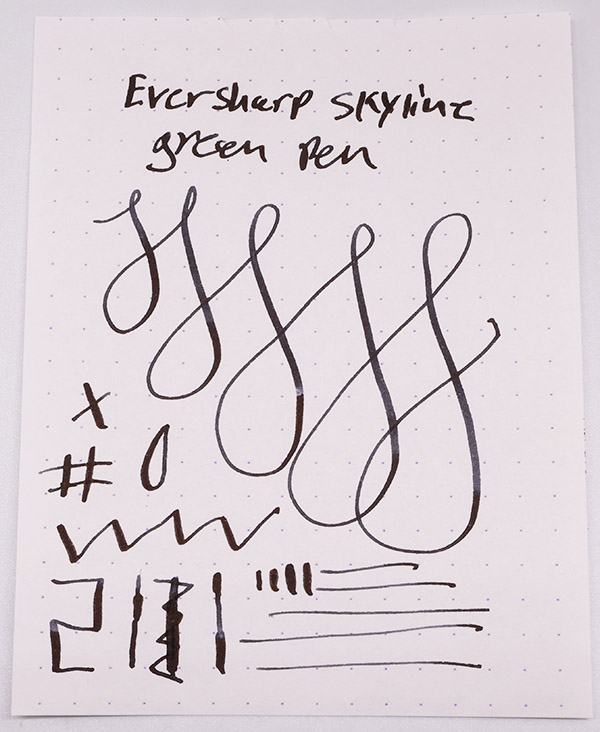 Eversharp skyline
green pen
x
# 0